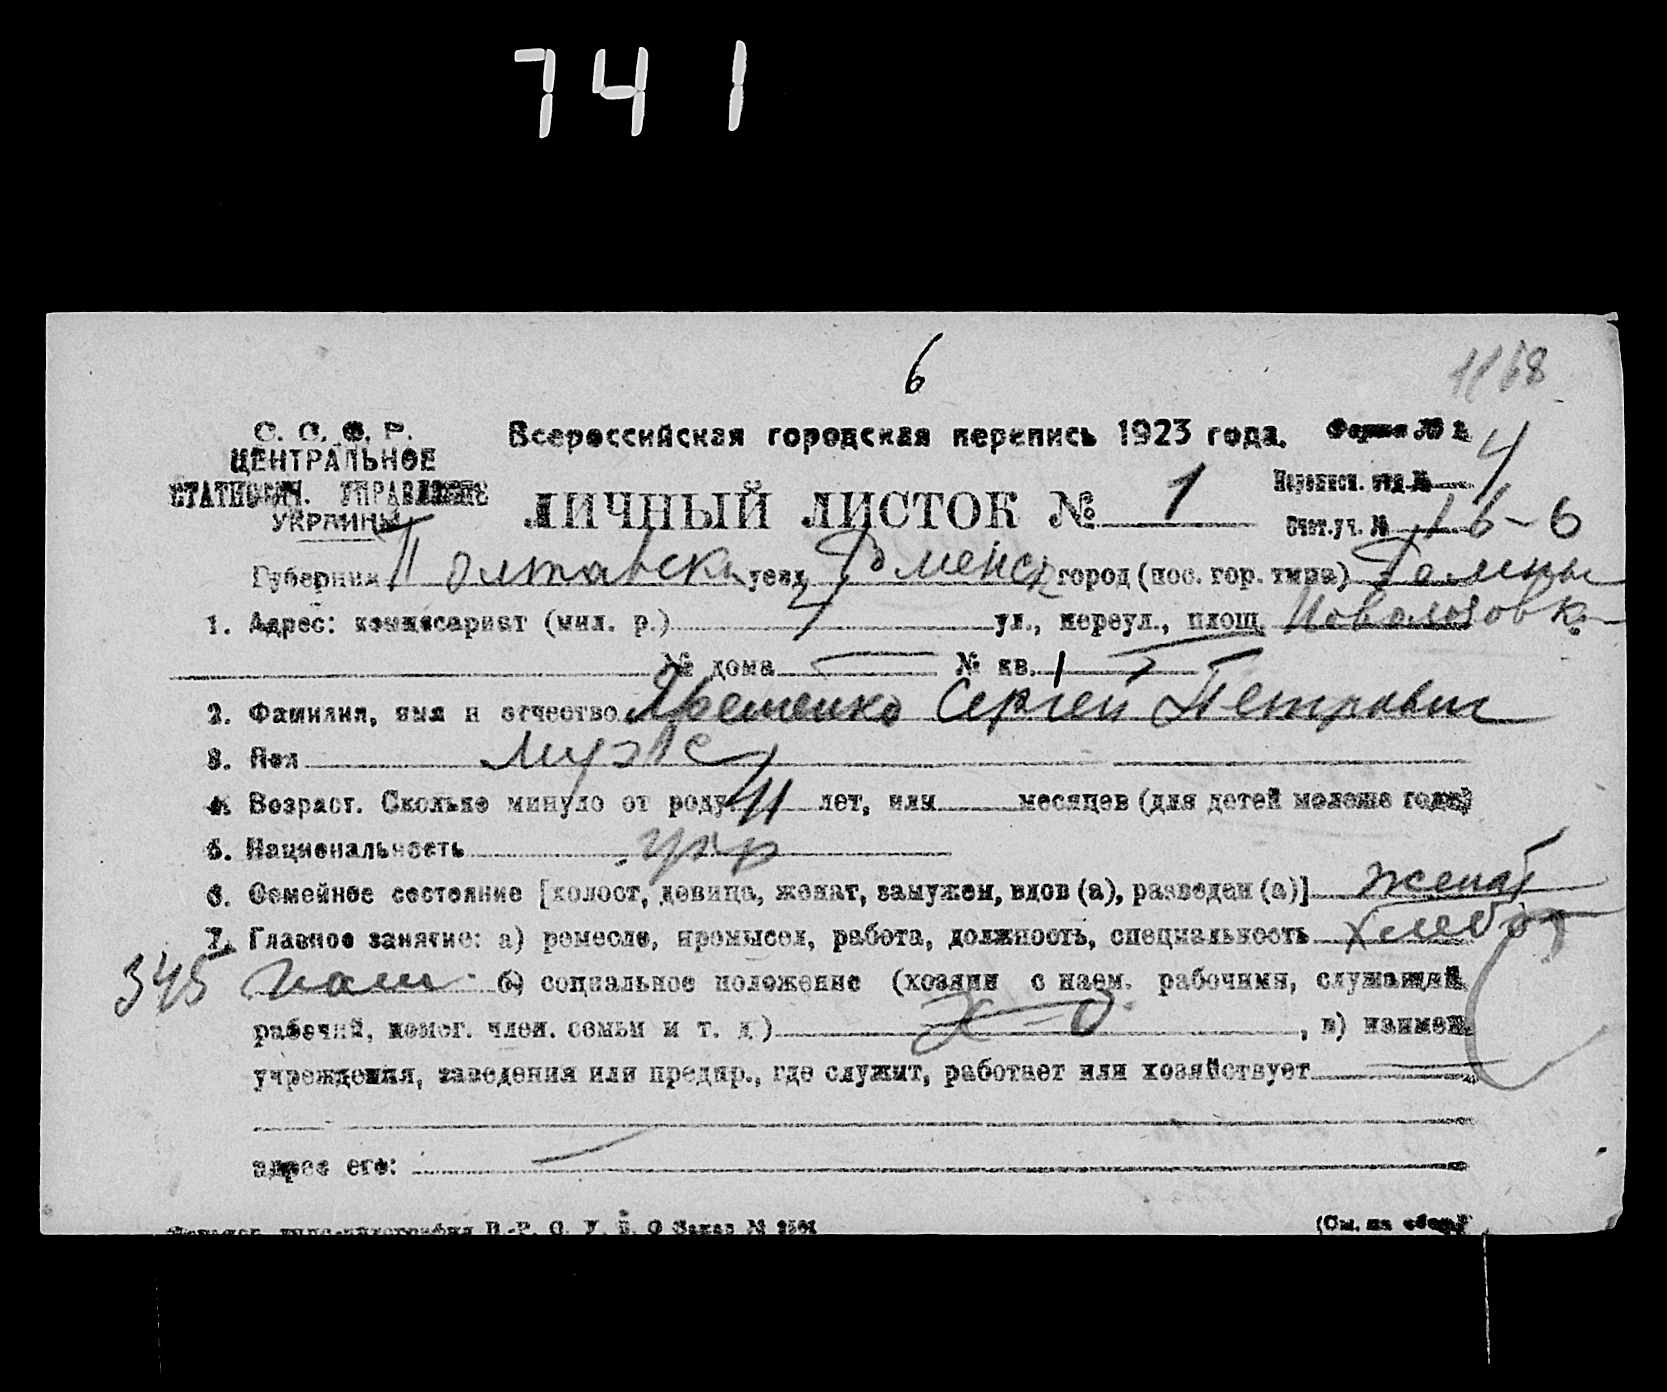 741
6
1168
С. С. Ф. Р.
ЦЕНТРАЛЬНОЕ
СТАТИСТИЧ. УПРАВЛЕНИЕ
УКРАИНЫ
Всероссийская городская перепись 1923 года.
Форма № 2.
ЛИЧНЫЙ ЛИСТОК № 1
Переписн. отд. № 4
Счет. уч. № 16-6
Губерния Полтавска уезд Роменск город (пос. гор. типа) Ромны
1. Адрес: комиссариат (мил. р.) ул., переул., площ.
№ дома № кв.
2. Фамилия, имя и отчество Яременко Сергей Петрович
3. Пол муж
4. Возраст. Сколько минуло от роду лет, или месяцев (для детей моложе года)
5. Национальность укр
6. Семейное состояние [холост, девица, женат, замужем, вдов (а), разведен (а)] женат
7. Главное занятие: а) ремесло, промысел, работа, должность, специальность хлебо
345 паш. б) социальное положение (хозяин с наем. рабочими, служащий,
рабочий, помог. член. семьи и т. д.) х-о. , в) наимен.
учреждения, заведения или предпр., где служит, работает или хозяйствует
адрес его:
В.-Р. С. У. В. О Заказ №
(См. на обор.)